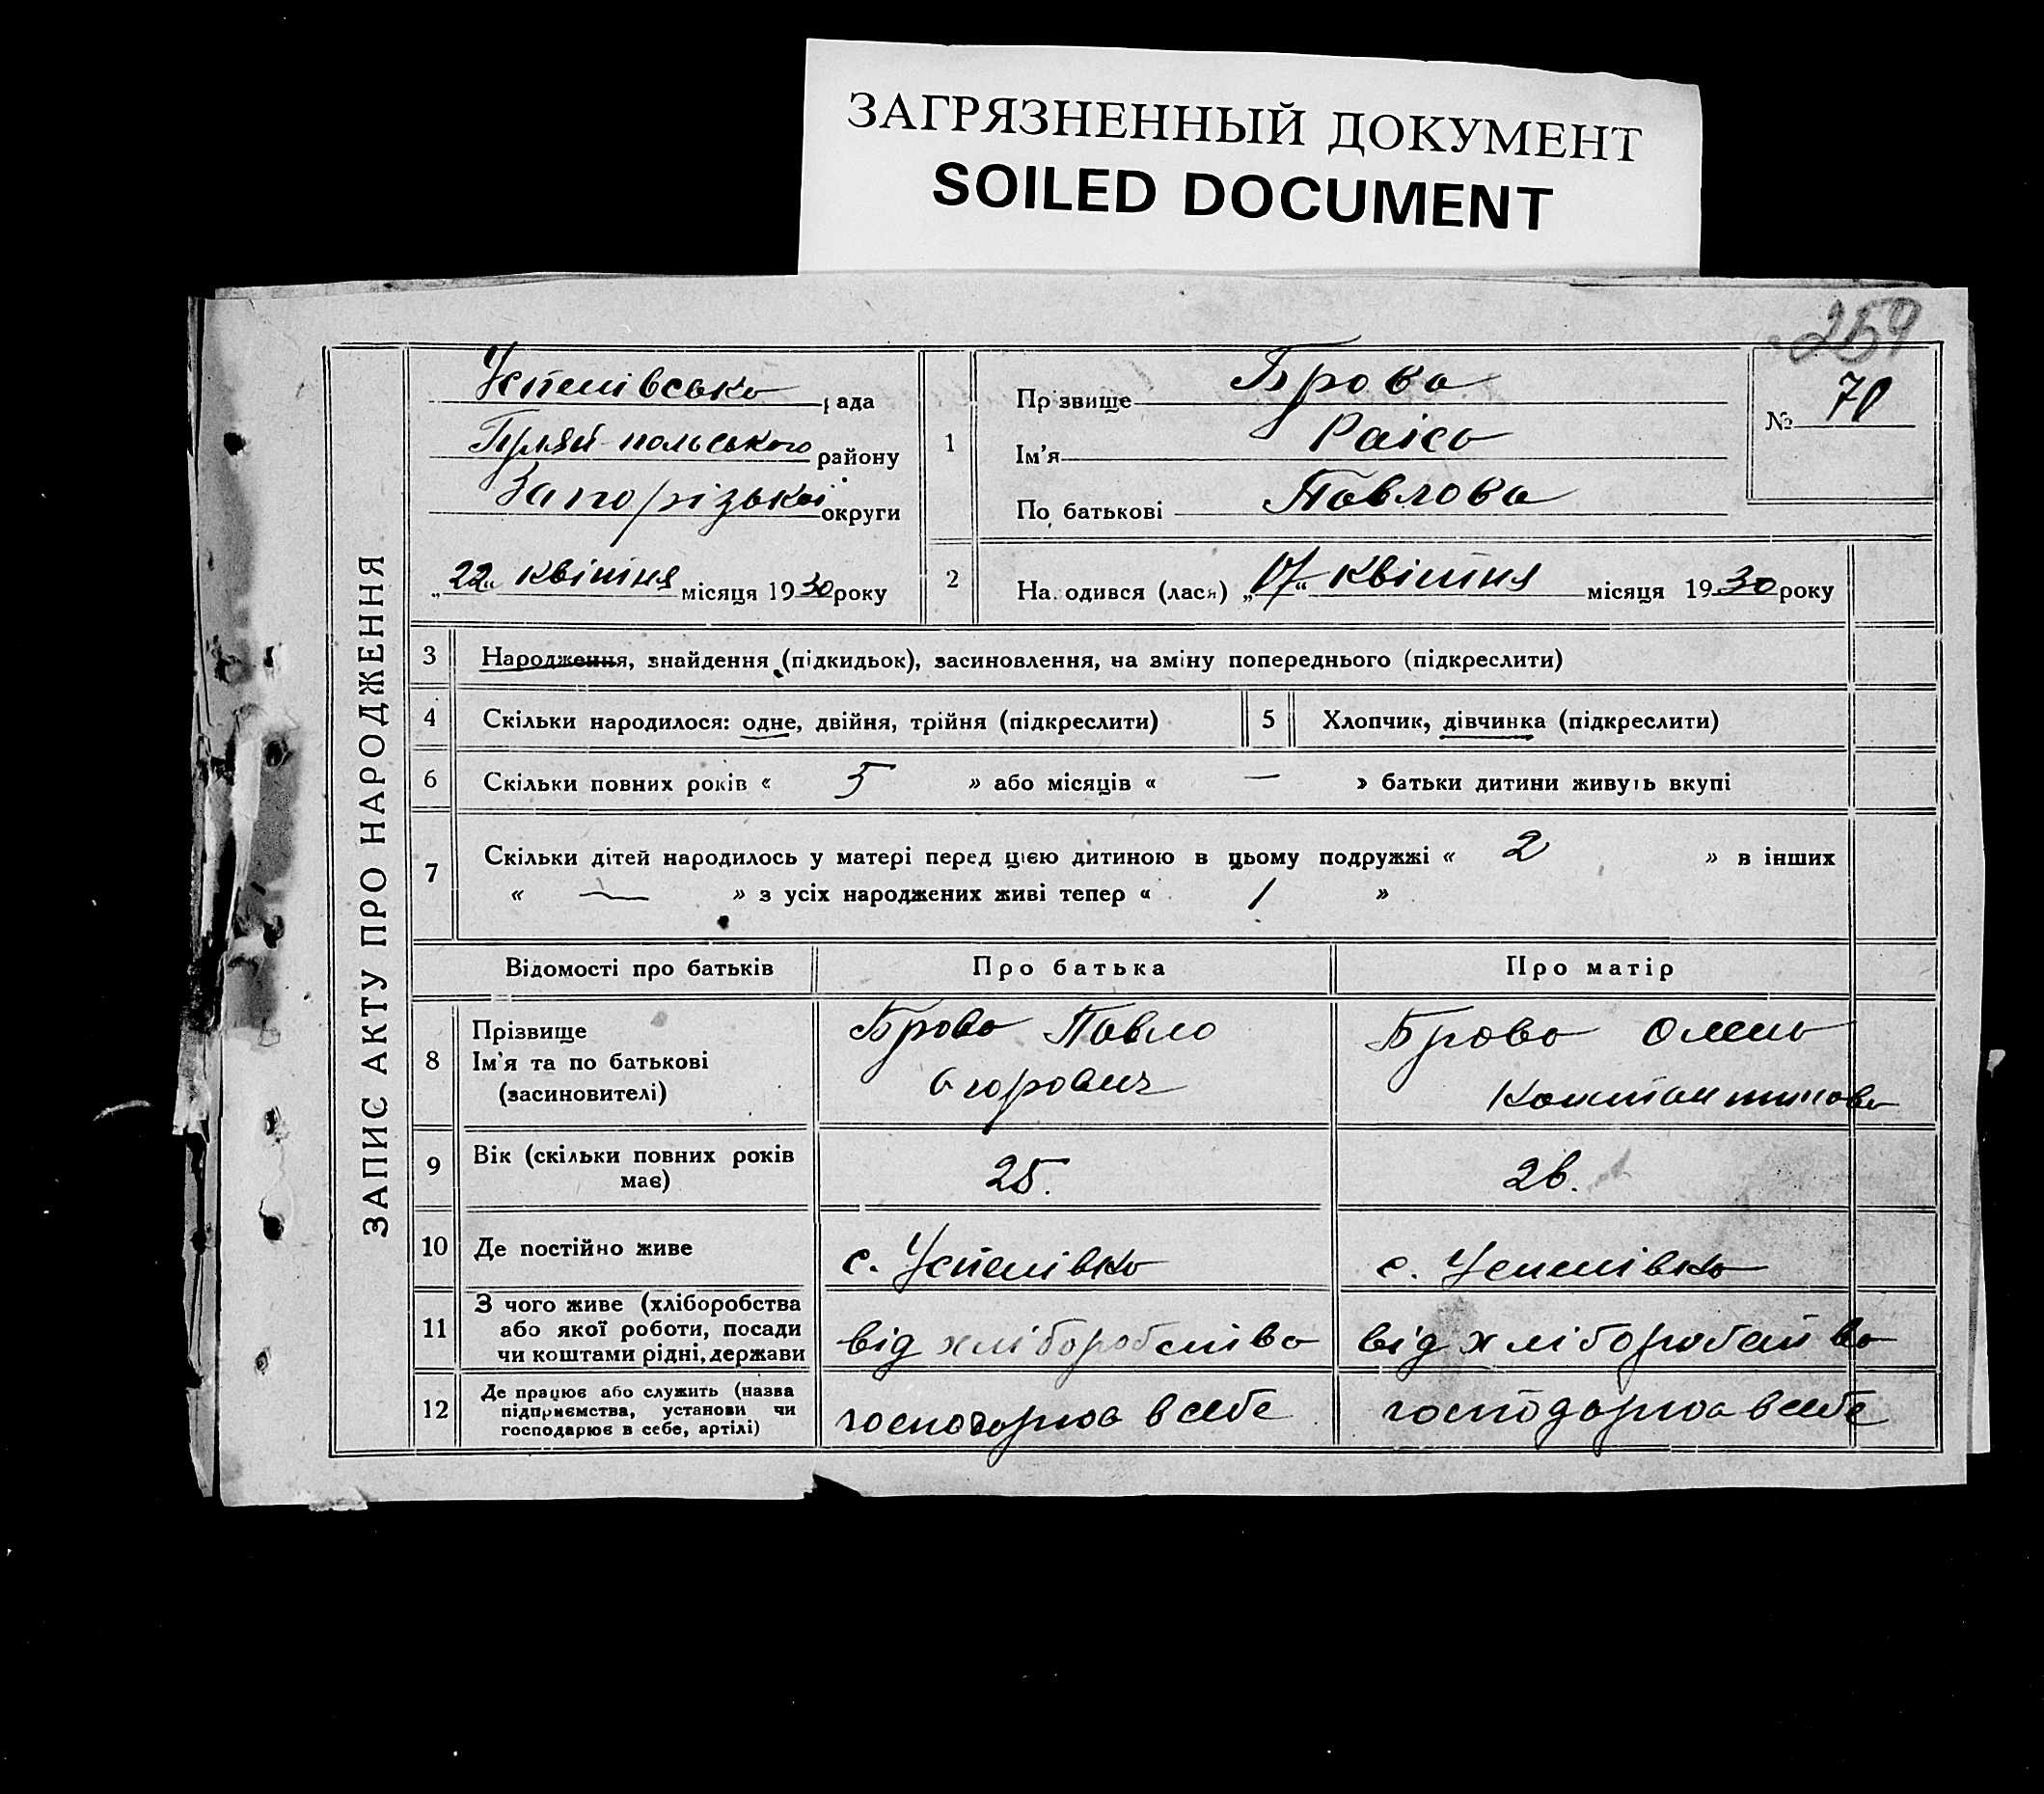 ЗАГРЯЗНЕННЫЙ ДОКУМЕНТ
SOILED DOCUMENT
259
ЗАПИС АКТУ ПРО НАРОДЖЕННЯ
Успенівська рада
Гуляй-польського району
Запорізької округи
„22„ квітня місяця 1930 року
1
Прізвище Брова
Ім'я Раіса
По батькові Павлова
№ 70
2 На одився (лася) „17“ квітня місяця 1930 року
3 Народження, знайдення (підкидьок), засиновлення, на зміну попереднього (підкреслити)
4 Скільки народилося: одне, двійня, трійня (підкреслити) 5 Хлопчик, дівчинка (підкреслити)
6 Скільки повних років « 5 » або місяців « — » батьки дитини живуть вкупі
7 Скільки дітей народилось у матері перед цією дитиною в цьому подружжі « 2 » в інших
« — » з усіх народжених живі тепер « 1 »
Відомості про батьків Про батька Про матір
8 Прізвище
Ім'я та по батькові
(засиновителі)
Брова Павло
Єгорович
Брова Олена
Константинова
9 Вік (скільки повних років
має)
25.
26.
10 Де постійно живе с. Успенівка с. Успенівка
11 З чого живе (хліборобства
або якої роботи, посади
чи коштами рідні, держави
від хліборобства від хліборобства
12 Де працює або служить (назва
підприємства, установи чи
господарює в себе, артілі)
господарюа в себе господарюа в себе